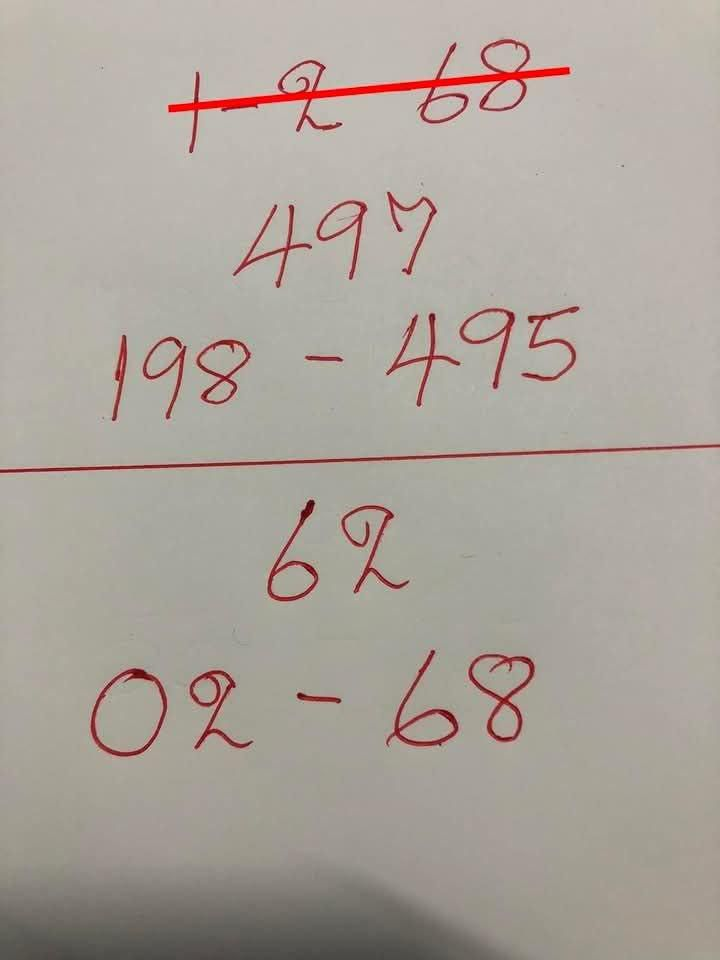 1-2-68
497
198 - 495
62
02 - 68